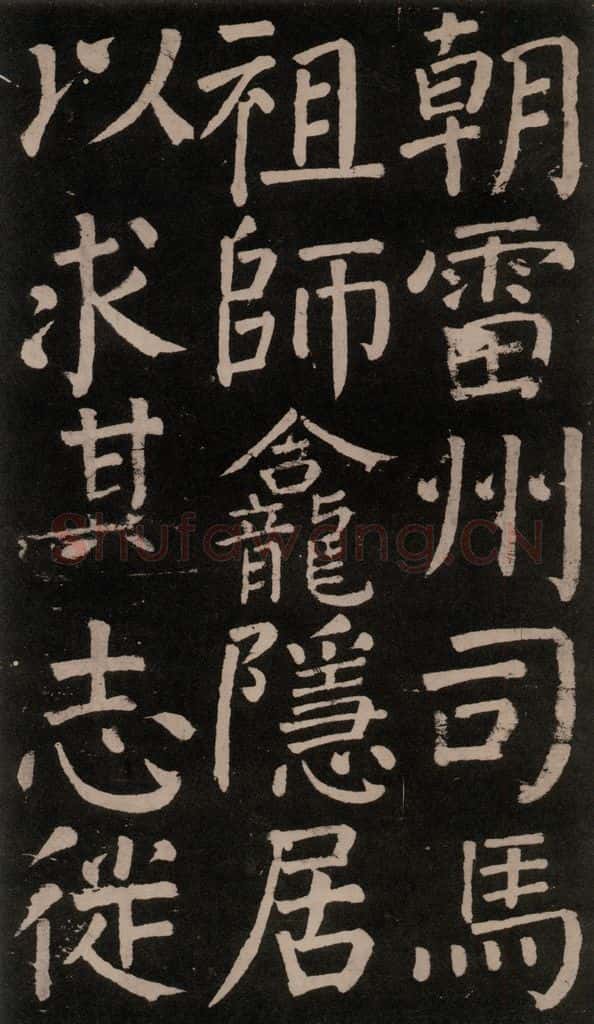 朝雷州司馬
祖師龕隱居
以求其志徙
Shufawang.CN